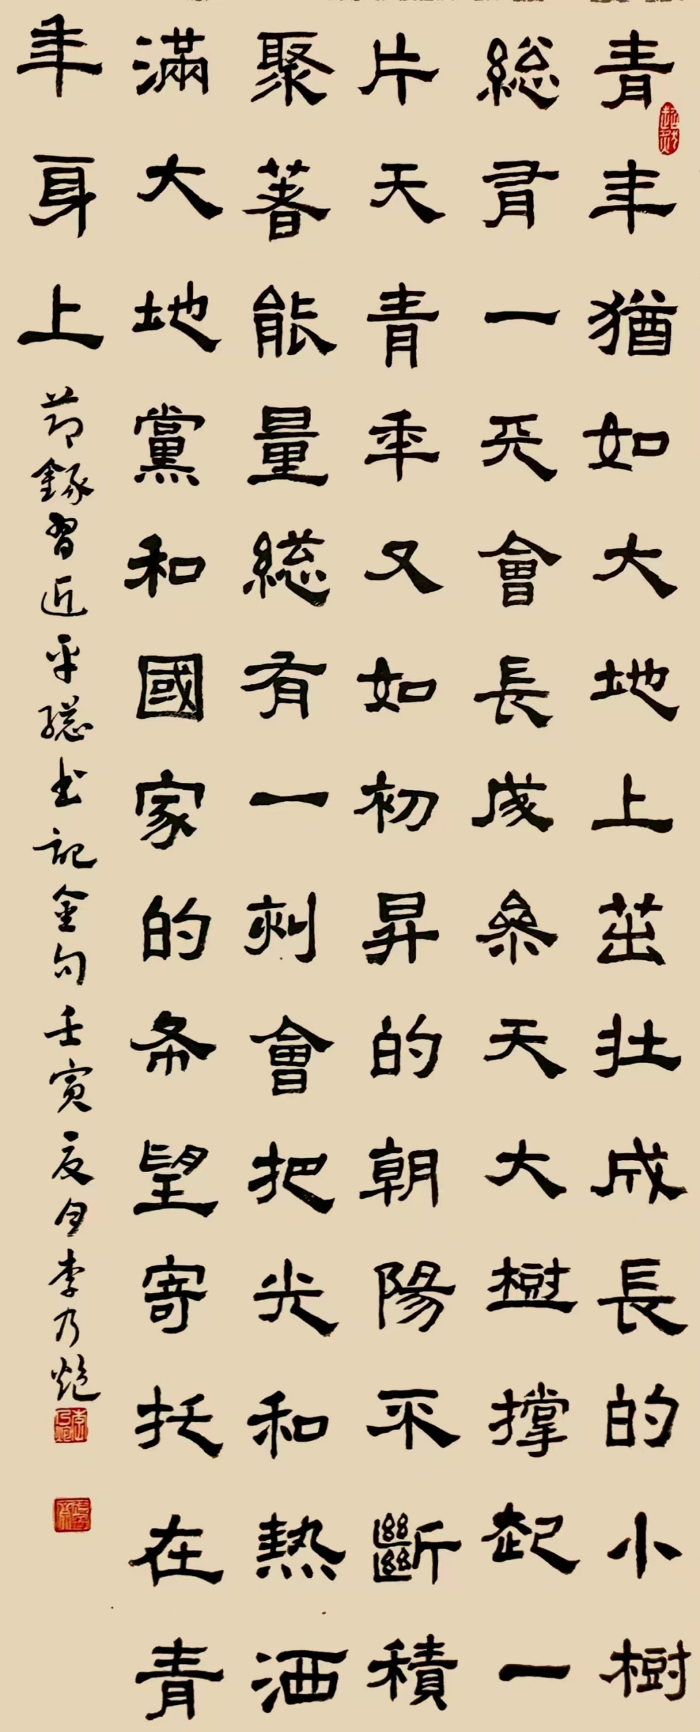 青年猶如大地上茁壯成長的小樹
総有一天會長成叅天大樹撐起一
片天青年又如初昇的朝陽不斷積
聚著能量総有一刻會把光和热洒
滿大地黨和國家的希望寄托在青
年身上
節錄習近平總書記金句壬寅夏月李乃熗